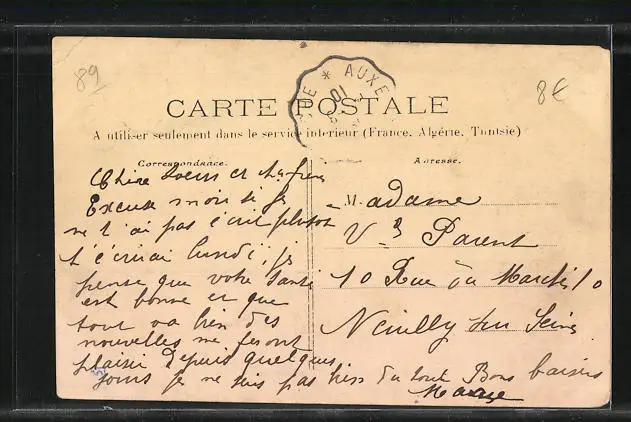 89
8€
AUXE
CARTE POSTALE
A utiliser seulement dans le service intérieur (France, Algérie, Tunisie)
Correspondance.
Adresse.
Chère Soeur et
Excuse moi si je
ne t'ai pas écrit plutot
t'écrirai lundi, je
pense que votre santé
est bonne et que
tout va bien des
nouvelles me feront
plaisir depuis quelques
jours je ne suis pas bien du tout Bons baisers
Madame
Vve Parent
10 Rue du Marché 10
Neuilly sur Seine